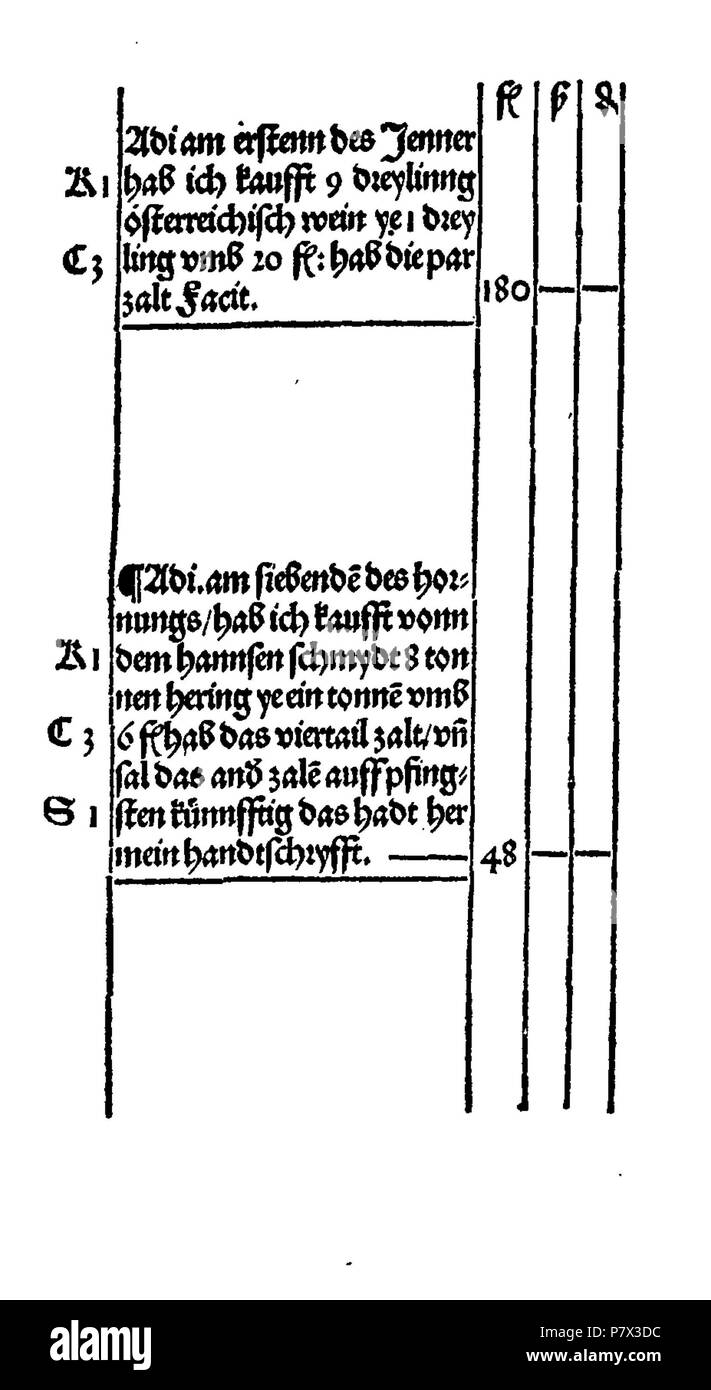 fl ß ₰
Adi am erstenn des Jenner
K 1 hab ich kaufft 9 dreylinng
österreichisch wein ye 1 drey
C 3 ling vmb 20 fl: hab die par
zalt Facit. 180 — —
¶ Adi. am siebendē des hor⸗
nungs/hab ich kaufft vonn
K 1 dem hannsen schmydt 8 ton
nen hering ye ein tonnē vmb
C 3 6 fl hab das viertail zalt/vn̄
sal das and̄ zalē auff pfing⸗
S 1 sten künnfftig das hadt her
mein handtschryfft. — 48 — —
alamy
alamy
Image ID: P7X3DC
www.alamy.com